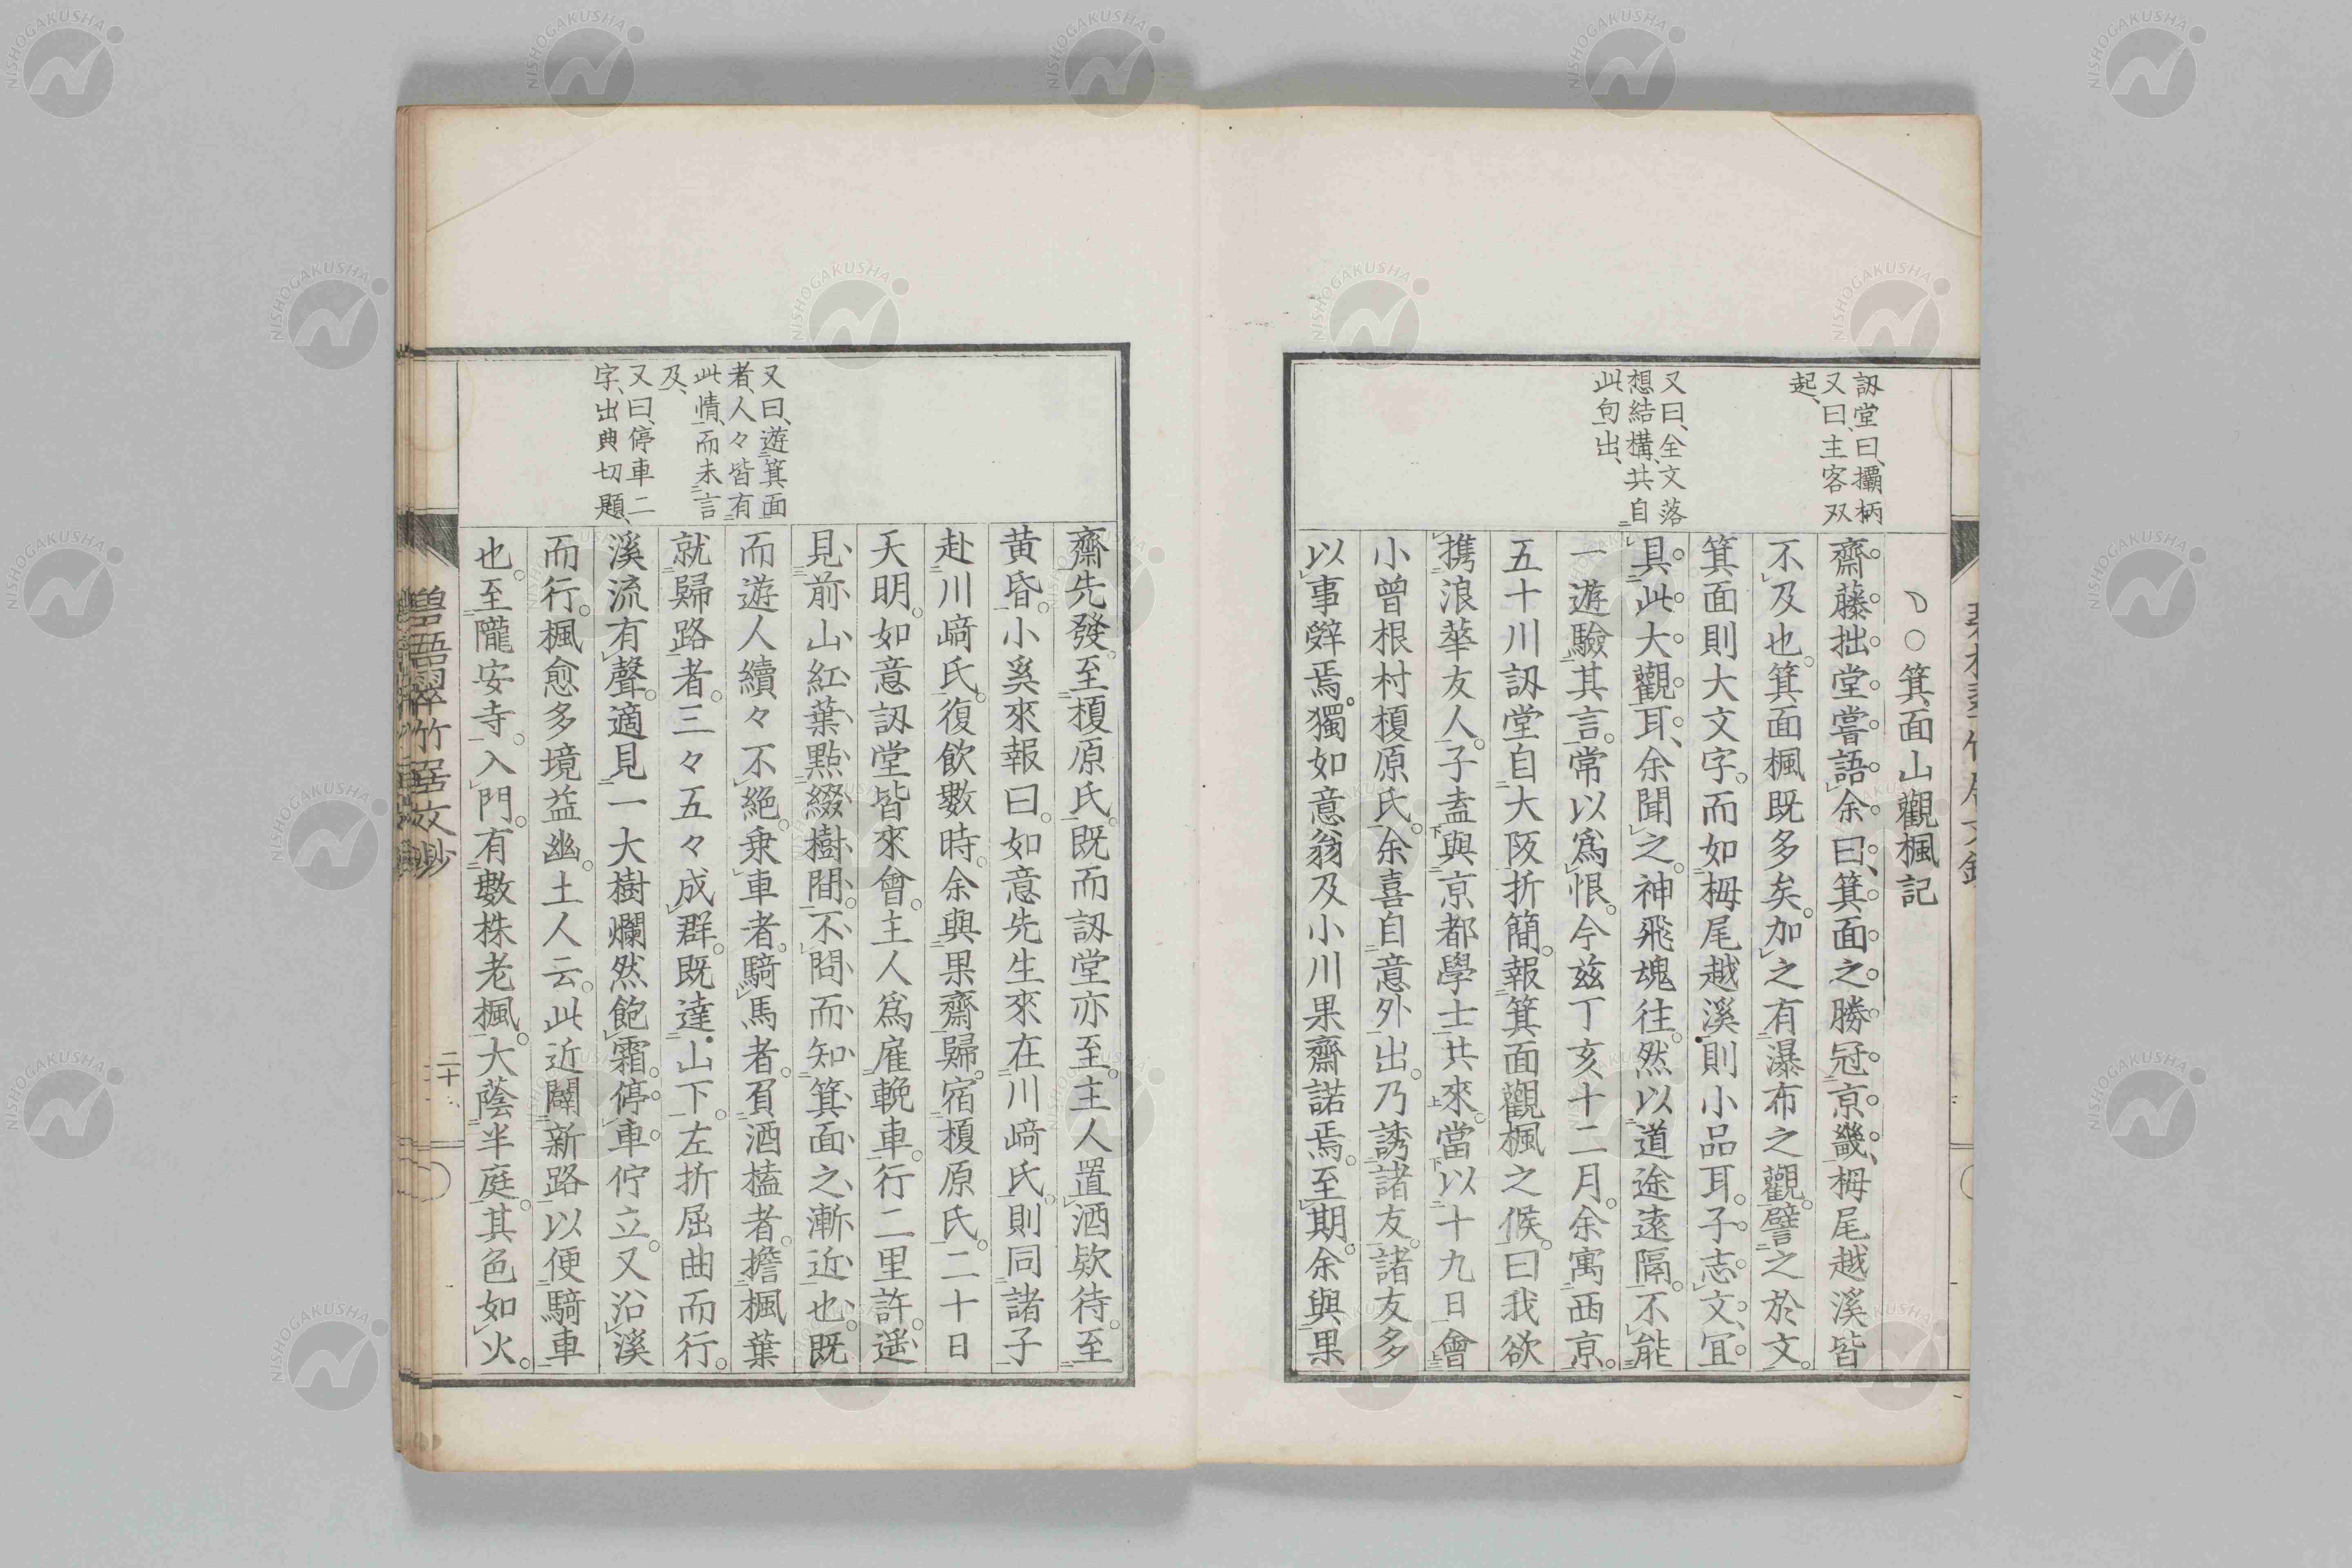 箕面山觀楓記
齋藤拙堂嘗語余曰、箕面之勝冠京畿、栂尾越溪皆
不及也。箕面楓既多矣。加之有瀑布之觀。譬之於文。
箕面則大文字。而如栂尾越溪則小品耳。子志文、宜
具此大觀耳、余聞之。神飛魂往。然以道途遠隔。不能
一遊驗其言。常以為恨。今兹丁亥十二月。余寓西京。
五十川訒堂自大阪折簡。報箕面觀楓之候。曰我欲
携浪華友人。子盍與京都學士共來。當以十九日會
小曾根村榎原氏。余喜自意外出。乃誘諸友。諸友多
以事辤焉。獨如意翁及小川果齋諾焉。至期。余與果
訒堂曰、攝柄
又曰、主客双
起、
又曰、全文落
想結構、共自
此句出、
齋先發。至榎原氏。既而訒堂亦至。主人置酒欵待。至
黄昏。小奚來報曰。如意先生來在川﨑氏。則同諸子
赴川﨑氏。復飲數時。余與果齋歸。宿榎原氏。二十日
天明。如意訒堂皆來會。主人為雇輓車。行二里許。遥
見前山紅葉點綴樹間。不問而知箕面之漸近也。既
而遊人續々不絶。乗車者。騎馬者。負酒榼者。擔楓葉
就歸路者。三々五々成群。既達山下。左折屈曲而行。
溪流有聲。適見一大樹爛然飽霜。停車佇立。又沿溪
而行。楓愈多境益幽。土人云。此近闢新路以便騎車
也。至隴安寺。入門。有數株老楓。大蔭半庭。其色如火。
又曰、遊箕面
者、人々皆有
此情、而未言
及、
又曰、停車二
字、出典切題、
碧梧翠竹居文鈔
二十